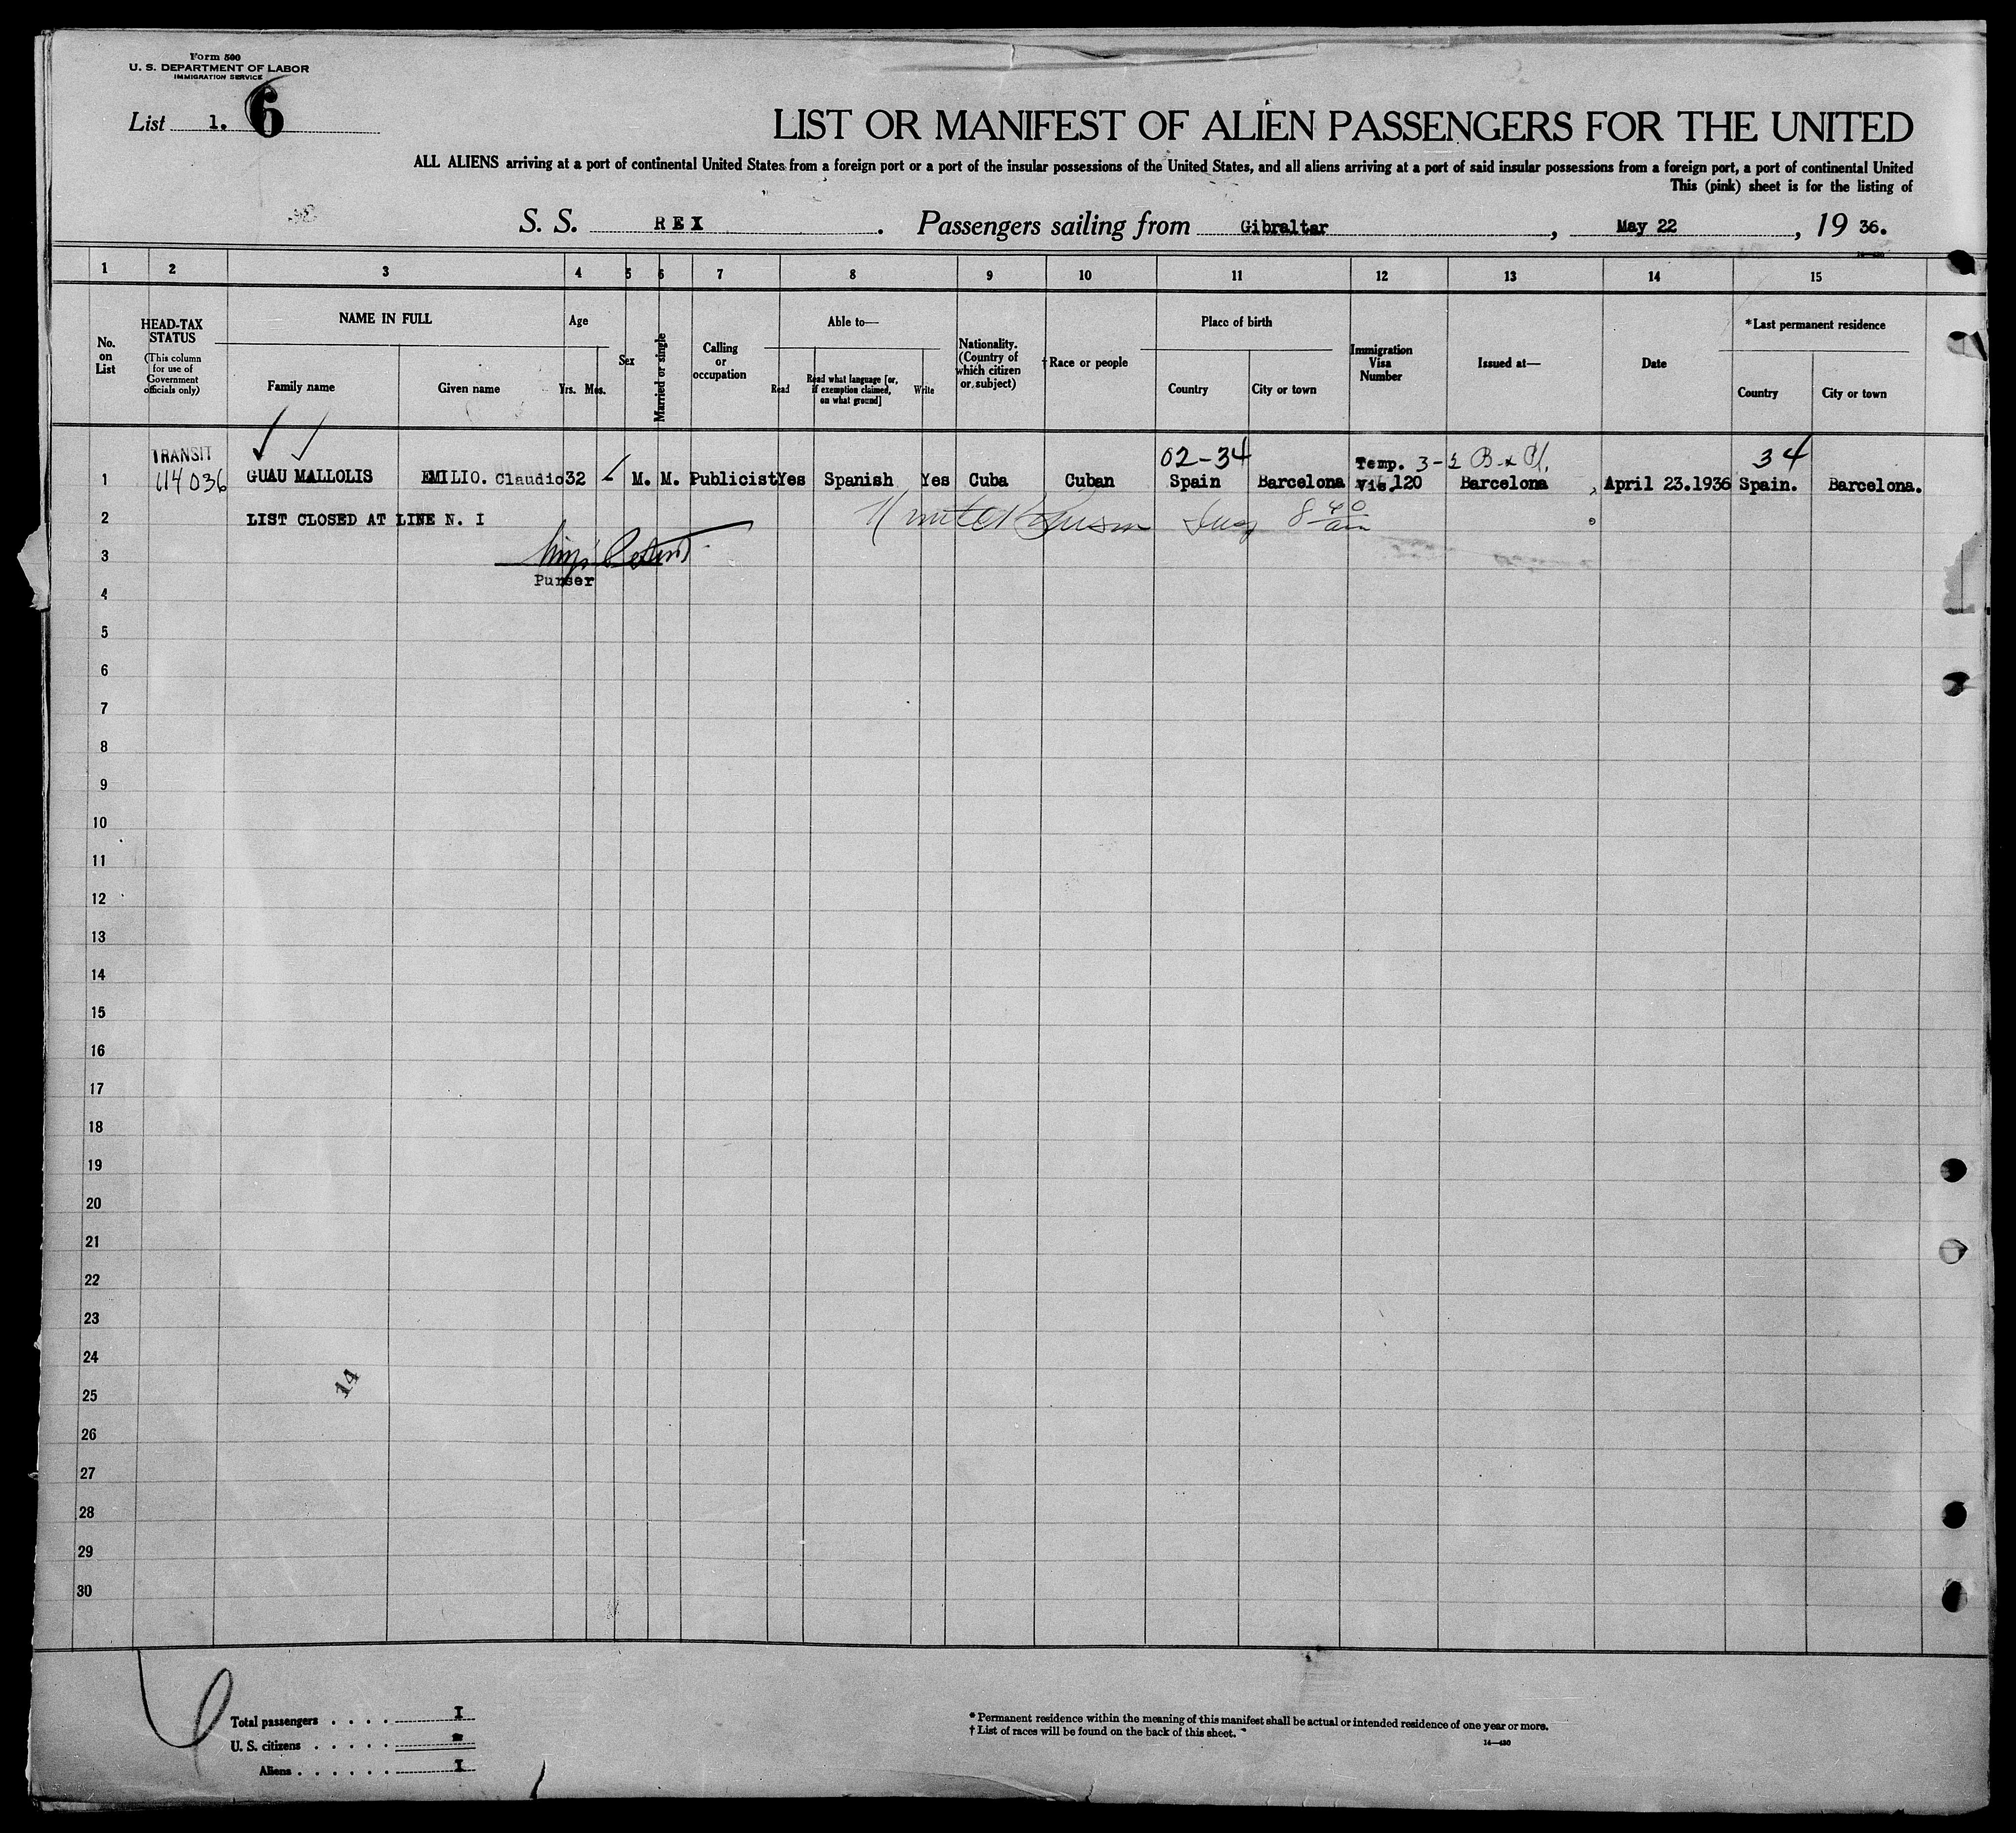 Form 500
U. S. DEPARTMENT OF LABOR
IMMIGRATION SERVICE
List 1. 6
LIST OR MANIFEST OF ALIEN PASSENGERS FOR THE UNITED
ALL ALIENS arriving at a port of continental United States from a foreign port or a port of the insular possessions of the United States, and all aliens arriving at a port of said insular possessions from a foreign port, a port of continental United
This (pink) sheet is for the listing of
S. S. REX . Passengers sailing from Gibraltar , May 22 , 19 36.
14—430
1 2 3 4 5 6 7 8 9 10 11 12 13 14 15
No. on List
HEAD-TAX STATUS (This column for use of Government officials only)
NAME IN FULL
Family name
Given name
Age
Yrs. Mos.
Sex
Married or single
Calling or occupation
Able to—
Read
Read what language [or, if exemption claimed, on what ground]
Write
Nationality. (Country of which citizen or subject)
† Race or people
Place of birth
Country
City or town
Immigration Visa Number
Issued at—
Date
*Last permanent residence
Country
City or town
TRANSIT 02-34 Temp. 3-2 34
1 114036 GUAU MALLOLIS EMILIO. Claudio 32 M. M. Publicist Yes Spanish Yes Cuba Cuban Spain Barcelona Vis. 120 Barcelona , April 23.1936 Spain. Barcelona.
2 LIST CLOSED AT LINE N. I
3
Purser
4
5
6
7
8
9
10
11
12
13
14
15
16
17
18
19
20
21
22
23
24
14
25
26
27
28
29
30
Total passengers . . . . I
U. S. citizens . . . . . -
Aliens . . . . . . I
* Permanent residence within the meaning of this manifest shall be actual or intended residence of one year or more.
† List of races will be found on the back of this sheet.
14—430